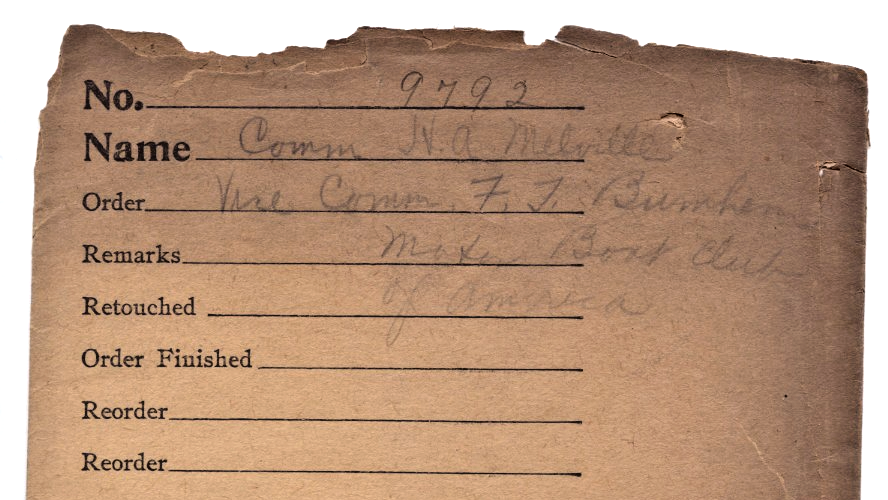 No. 9792
Name Comm H. A. Melville
Order Vice Comm. F. T. Burnham
Remarks Motor Boat Club
Retouched of America
Order Finished
Reorder
Reorder